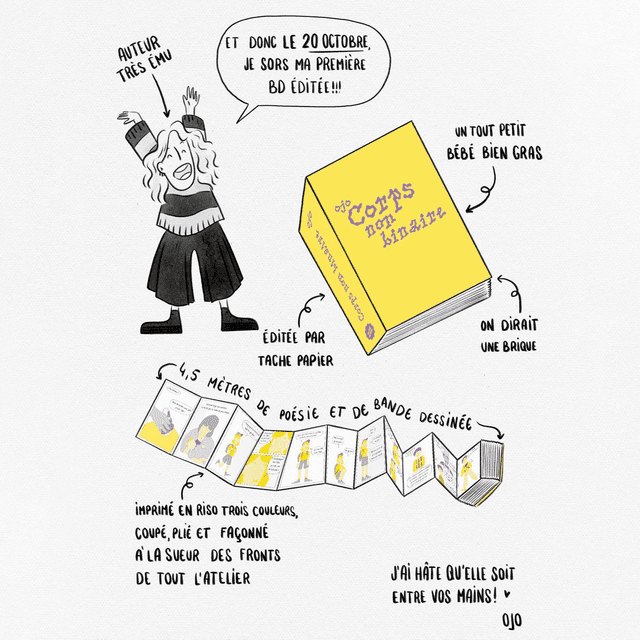 AUTEUR
TRÈS ÉMU
ET DONC LE 20 OCTOBRE,
JE SORS MA PREMIÈRE
BD ÉDITÉE!!!
UN TOUT PETIT
BÉBÉ BIEN GRAS
ojo
Corps
non
binaire
ojo
Corps non binaire
ÉDITÉE PAR
TACHE PAPIER
ON DIRAIT
UNE BRIQUE
4,5 MÈTRES DE POÉSIE ET DE BANDE DESSINÉE
IMPRIMÉ EN RISO TROIS COULEURS,
COUPÉ, PLIÉ ET FAÇONNÉ
À LA SUEUR DES FRONTS
DE TOUT L'ATELIER
J'AI HÂTE QU'ELLE SOIT
ENTRE VOS MAINS! ♥
OJO